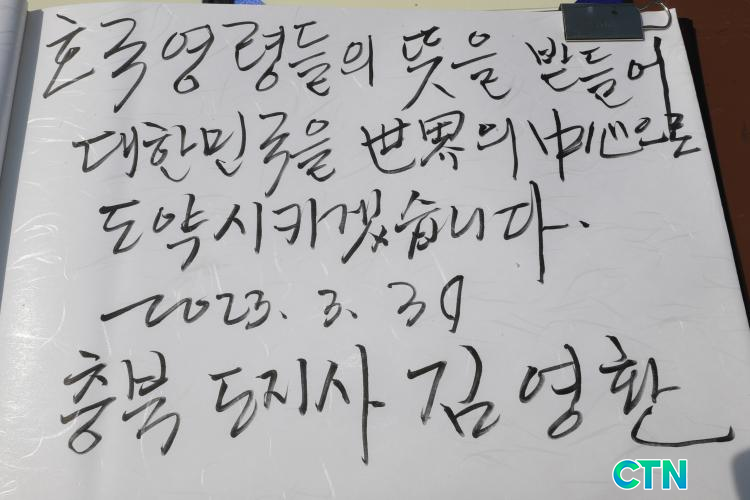 호국영령들의 뜻을 받들어
대한민국을 世界의 中心으로
도약시키겠습니다.
2023. 3. 30
충북 도지사 김영환
CTN